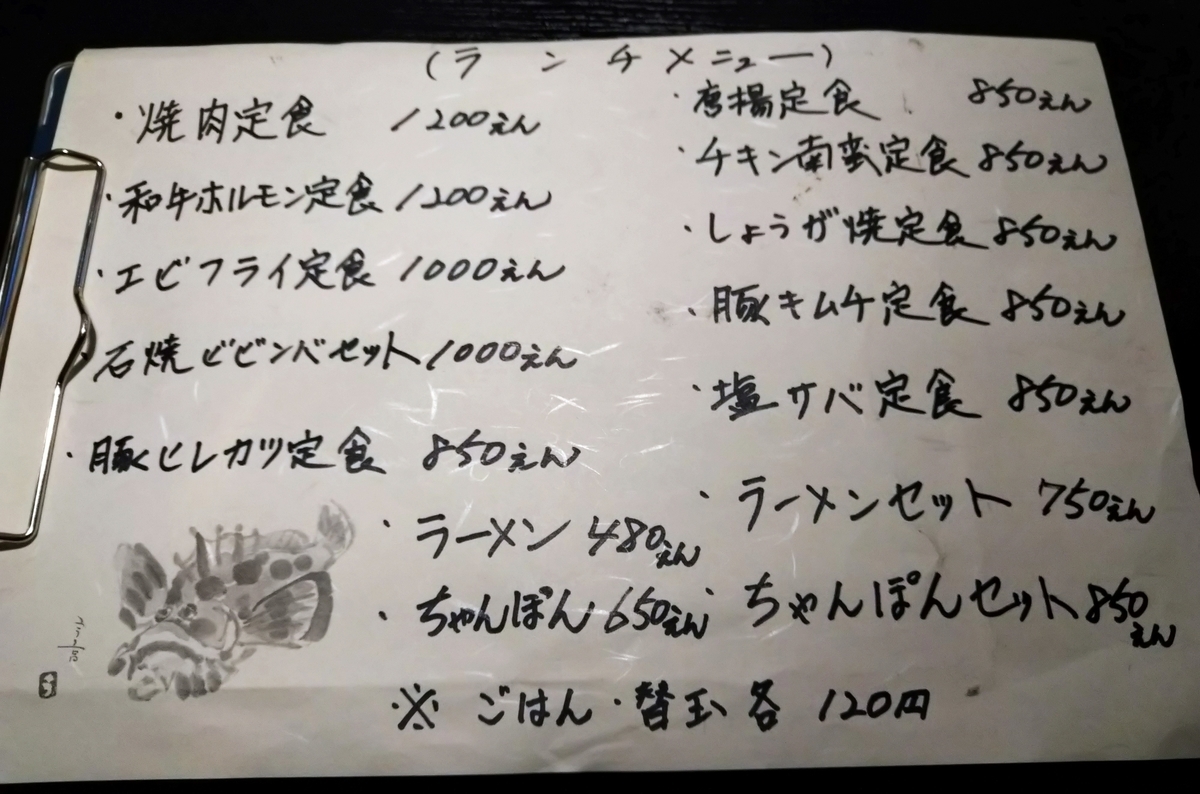 (ランチメニュー)
・焼肉定食 1200えん
・和牛ホルモン定食 1200えん
・エビフライ定食 1000えん
・石焼ビビンバセット 1000えん
・豚ヒレカツ定食 850えん
・唐揚定食 850えん
・チキン南蛮定食 850えん
・しょうが焼定食 850えん
・豚キムチ定食 850えん
・塩サバ定食 850えん
・ラーメン 480えん
・ラーメンセット 750えん
・ちゃんぽん 650えん
・ちゃんぽんセット 850えん
※ ごはん・替玉 各 120円